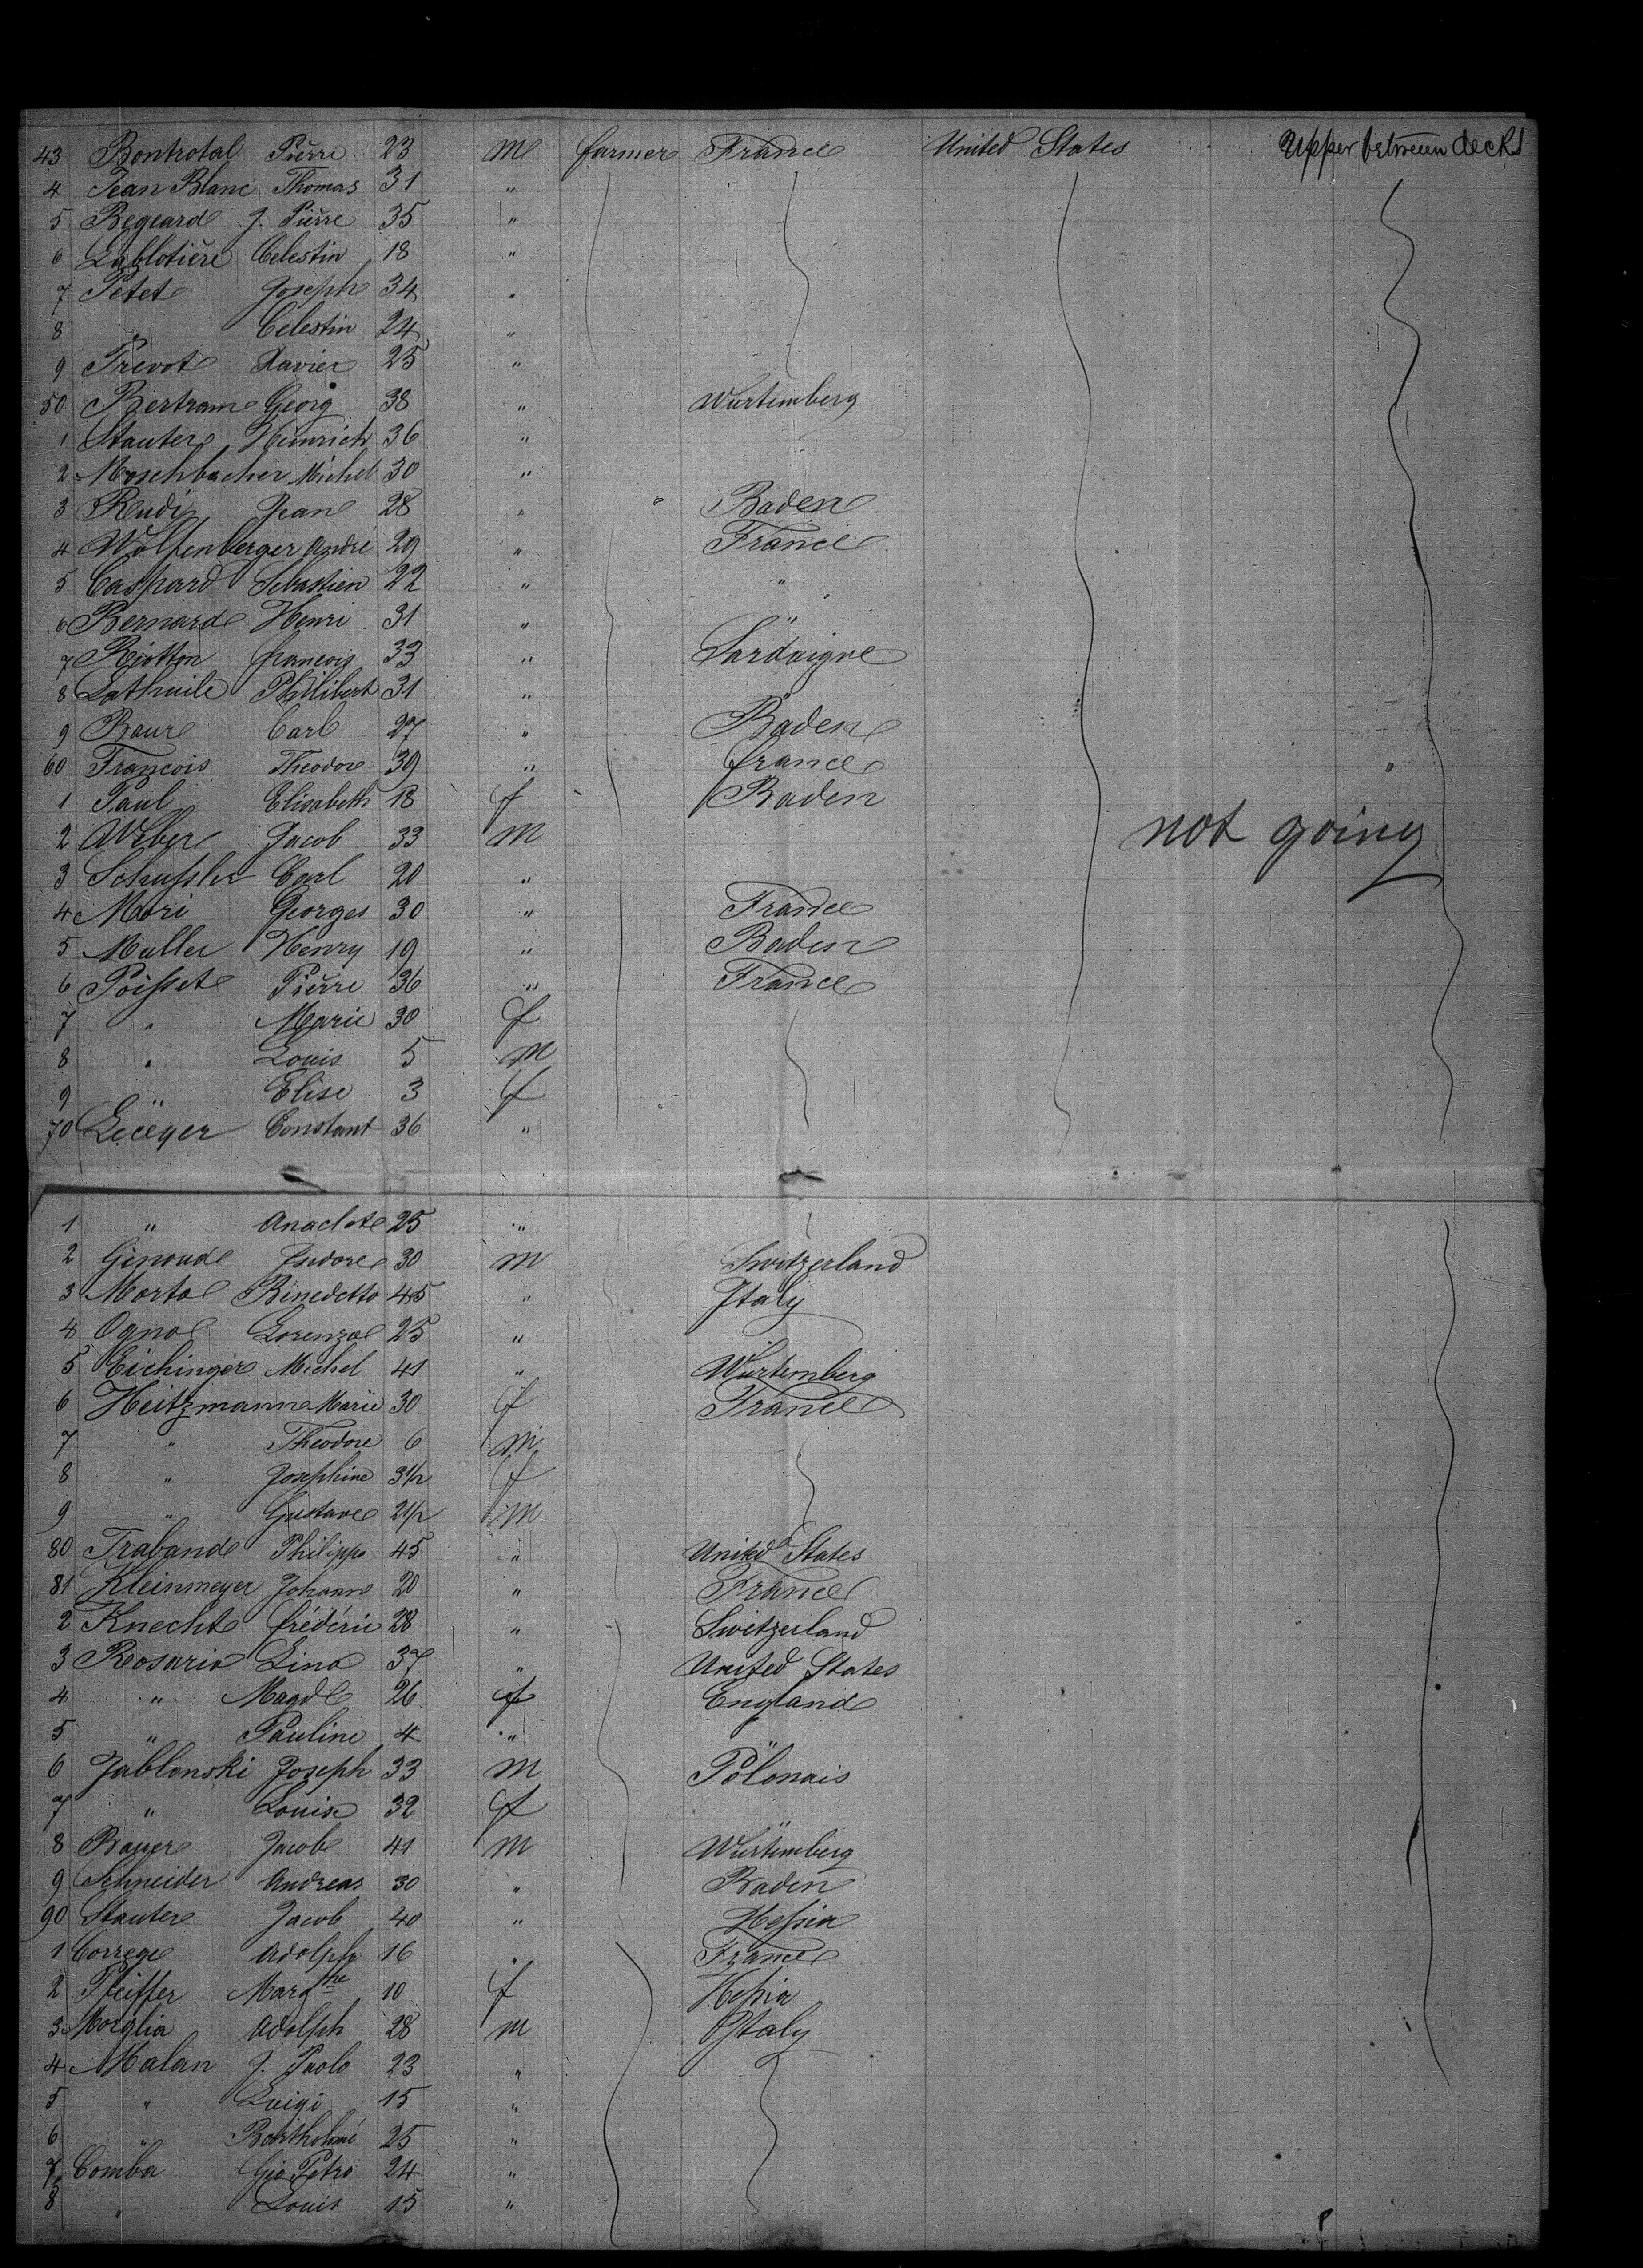 43 Bontrotal Pierre 23 M farmer France United States Upper between decks
4 Jean Blanc Thomas 31 "
5 Begeard J. Pierre 35 "
6 Lablotiere Celestin 18 "
7 Petet Joseph 34 "
8 " Celestin 24 "
9 Prevot Xavier 25 "
50 Bertram Georg 38 " Wurtemberg
1 Stauter Heinrich 36 "
2 Moschbacher Michel 30 "
3 Rudi Jean 28 " Baden
4 Wolfenberger André 29 " France
5 Caspard Sebastien 22 " "
6 Bernard Henri 31 " "
7 Riotton francois 33 " Sardaigne
8 Lathuile Philibert 31 " "
9 Baur Carl 27 " Baden
60 Francois Theodore 39 " france "
1 Paul Elisabeth 18 f Baden
2 Weber Jacob 33 M not going
3 Schussler Carl 20 "
4 Mori Georges 30 " France
5 Muller Henry 19 " Baden
6 Poisset Pierre 36 " France
7 " Marie 30 f
8 " Louis 5 M
9 " Elise 3 f
70 Constant 36 "
1 " Anaclete 25 "
2 Genoud Isidore 30 M Switzerland
3 Morta Benedetto 45 " Italy
4 Ogno Lorenzo 25 " "
5 Eichinger Michel 41 " Würtemberg
6 Heitzmann Marie 30 f France
7 " Theodore 6 M
8 " Josephine 3 1/2 f
9 " Gustave 2 1/2 M
80 Traband Philippe 45 " United States
81 Kleinmeyer Johann 20 " France
2 Knecht frédéric 28 " Switzerland
3 Rosario Lino 37 " United States
4 " Magd 26 f England
5 " Pauline 4 " "
6 Jablonski Joseph 33 M Polonais
7 " Louise 32 f "
8 Bauer Jacob 41 M Würtemberg
9 Schneider Andreas 30 " Baden
90 Stauter Jacob 40 " Hessia
1 Correge Adolph 16 " France
2 Pfeiffer Margthe 10 f Hessia
3 Morglia Adolph 28 M Italy
4 Malan J. Paolo 23 "
5 " Luigi 15 "
6 " Bartholomé 25 "
7 Comba Gio Petro 24 "
8 " Louis 15 "